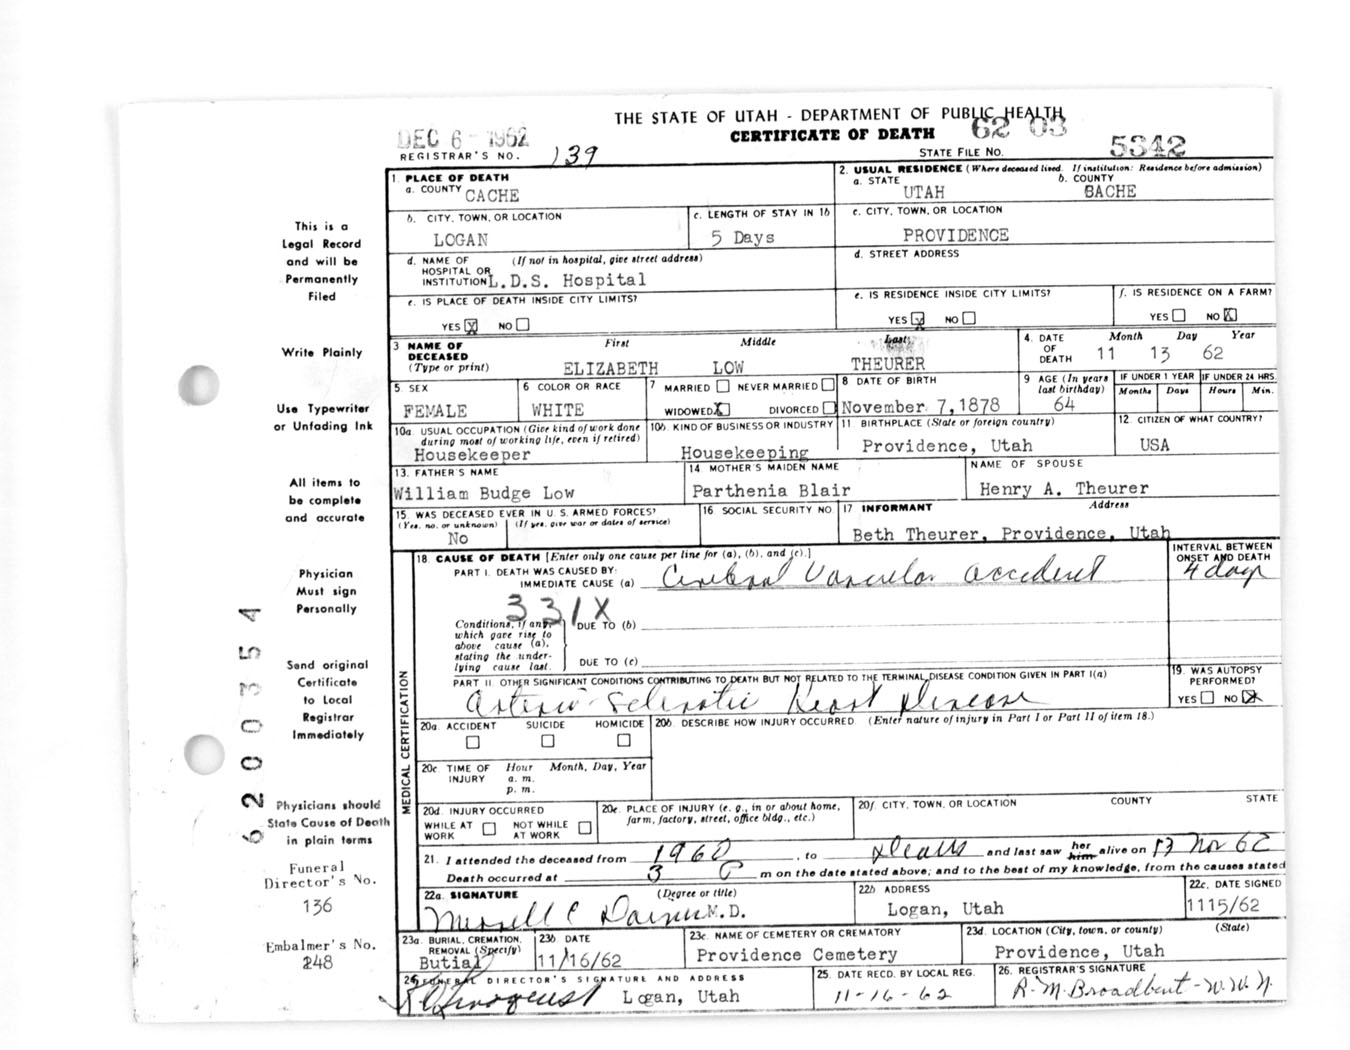 THE STATE OF UTAH - DEPARTMENT OF PUBLIC HEALTH
DEC 6 - 1962 CERTIFICATE OF DEATH 62 03
REGISTRAR'S NO. 139 STATE FILE NO. 5342
1. PLACE OF DEATH
a. COUNTY CACHE
2. USUAL RESIDENCE (Where deceased lived. If institution: Residence before admission)
a. STATE UTAH b. COUNTY BACHE
b. CITY, TOWN, OR LOCATION LOGAN
c. LENGTH OF STAY IN 1b 5 Days
c. CITY, TOWN, OR LOCATION PROVIDENCE
d. NAME OF HOSPITAL OR INSTITUTION (If not in hospital, give street address) L.D.S. Hospital
d. STREET ADDRESS
e. IS PLACE OF DEATH INSIDE CITY LIMITS?
YES X NO
e. IS RESIDENCE INSIDE CITY LIMITS?
YES X NO
f. IS RESIDENCE ON A FARM?
YES NO X
3 NAME OF DECEASED (Type or print) First Middle Last
ELIZABETH LOW THEURER
4. DATE OF DEATH Month Day Year
11 13 62
5. SEX FEMALE
6 COLOR OR RACE WHITE
7 MARRIED NEVER MARRIED
WIDOWED X DIVORCED
8 DATE OF BIRTH November 7,1878
9 AGE (In years last birthday) 64
IF UNDER 1 YEAR Months Days
IF UNDER 24 HRS. Hours Min.
10a. USUAL OCCUPATION (Give kind of work done during most of working life, even if retired)
Housekeeper
10b. KIND OF BUSINESS OR INDUSTRY
Housekeeping
11 BIRTHPLACE (State or foreign country)
Providence, Utah
12. CITIZEN OF WHAT COUNTRY?
USA
13. FATHER'S NAME
William Budge Low
14. MOTHER'S MAIDEN NAME
Parthenia Blair
NAME OF SPOUSE
Henry A. Theurer
15. WAS DECEASED EVER IN U.S. ARMED FORCES?
(Yes, no, or unknown) (If yes, give war or dates of service)
No
16. SOCIAL SECURITY NO.
17 INFORMANT Address
Beth Theurer, Providence, Utah
MEDICAL CERTIFICATION
18. CAUSE OF DEATH [Enter only one cause per line for (a), (b), and (c).]
INTERVAL BETWEEN ONSET AND DEATH
PART I. DEATH WAS CAUSED BY:
IMMEDIATE CAUSE (a) Cerebral Vascular accident 4 days
331X
Conditions, if any, which gave rise to above cause (a), stating the underlying cause last.
DUE TO (b)
DUE TO (c)
PART II. OTHER SIGNIFICANT CONDITIONS CONTRIBUTING TO DEATH BUT NOT RELATED TO THE TERMINAL DISEASE CONDITION GIVEN IN PART I(a)
Arterio-Sclerotic Heart Disease
19. WAS AUTOPSY PERFORMED?
YES NO X
20a. ACCIDENT SUICIDE HOMICIDE
20b. DESCRIBE HOW INJURY OCCURRED (Enter nature of injury in Part I or Part II of item 18.)
20c TIME OF INJURY Hour Month, Day, Year
a. m.
p. m.
20d. INJURY OCCURRED
WHILE AT WORK NOT WHILE AT WORK
20e. PLACE OF INJURY (e. g., in or about home, farm, factory, street, office bldg., etc.)
20f. CITY, TOWN, OR LOCATION COUNTY STATE
21. I attended the deceased from 1960, to Death and last saw her him alive on 13 Nov 62
Death occurred at 3 P m on the date stated above; and to the best of my knowledge, from the causes stated
22a. SIGNATURE (Degree or title)
Merrell C Daines M.D.
22b ADDRESS
Logan, Utah
22c. DATE SIGNED
1115/62
23a. BURIAL, CREMATION, REMOVAL (Specify)
Butial
23b. DATE
11/16/62
23c. NAME OF CEMETERY OR CREMATORY
Providence Cemetery
23d. LOCATION (City, town, or county) (State)
Providence, Utah
24 FUNERAL DIRECTOR'S SIGNATURE AND ADDRESS
Logan, Utah
25. DATE RECD. BY LOCAL REG.
11-16-62
26. REGISTRAR'S SIGNATURE
R.M. Broadbent
This is a
Legal Record
and will be
Permanently
Filed
Write Plainly
Use Typewriter
or Unfading Ink
All items to
be complete
and accurate
Physician
Must sign
Personally
Send original
Certificate
to Local
Registrar
Immediately
Physicians should
State Cause of Death
in plain terms
Funeral
Director's No.
136
Embalmer's No.
248
6200354